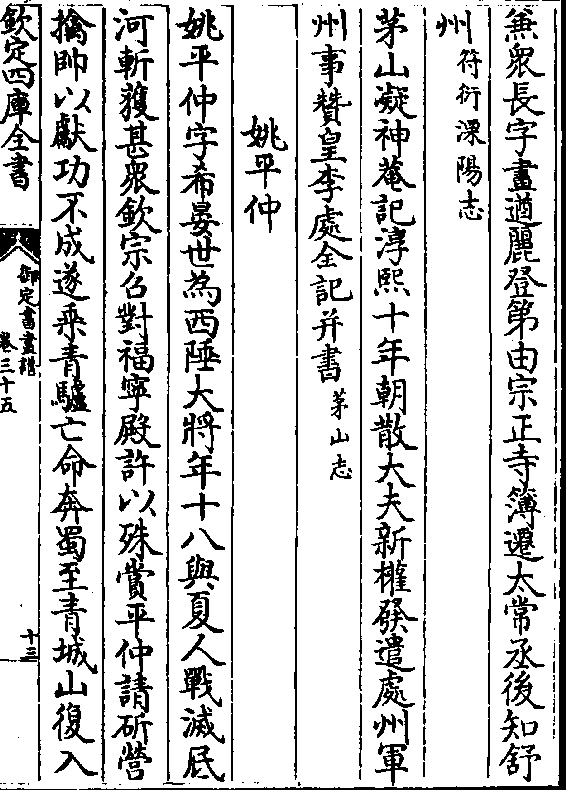 兼衆長字畫遒麗登第由宗正寺簿遷太常丞後知舒
州符衍溧陽志
茅山凝神菴記淳熙十年朝散大夫新權發遣處州軍
州事贊皇李處全記并書茅山志
姚平仲
姚平仲字希晏世為西陲大將年十八與夏人戰滅底
河斬獲甚衆欽宗召對福寧殿許以殊賞平仲請斫營
擒帥以獻功不成遂乘青騾亡命奔蜀至青城山復入
欽定四庫全書
御定書畫譜
卷三十五
十三